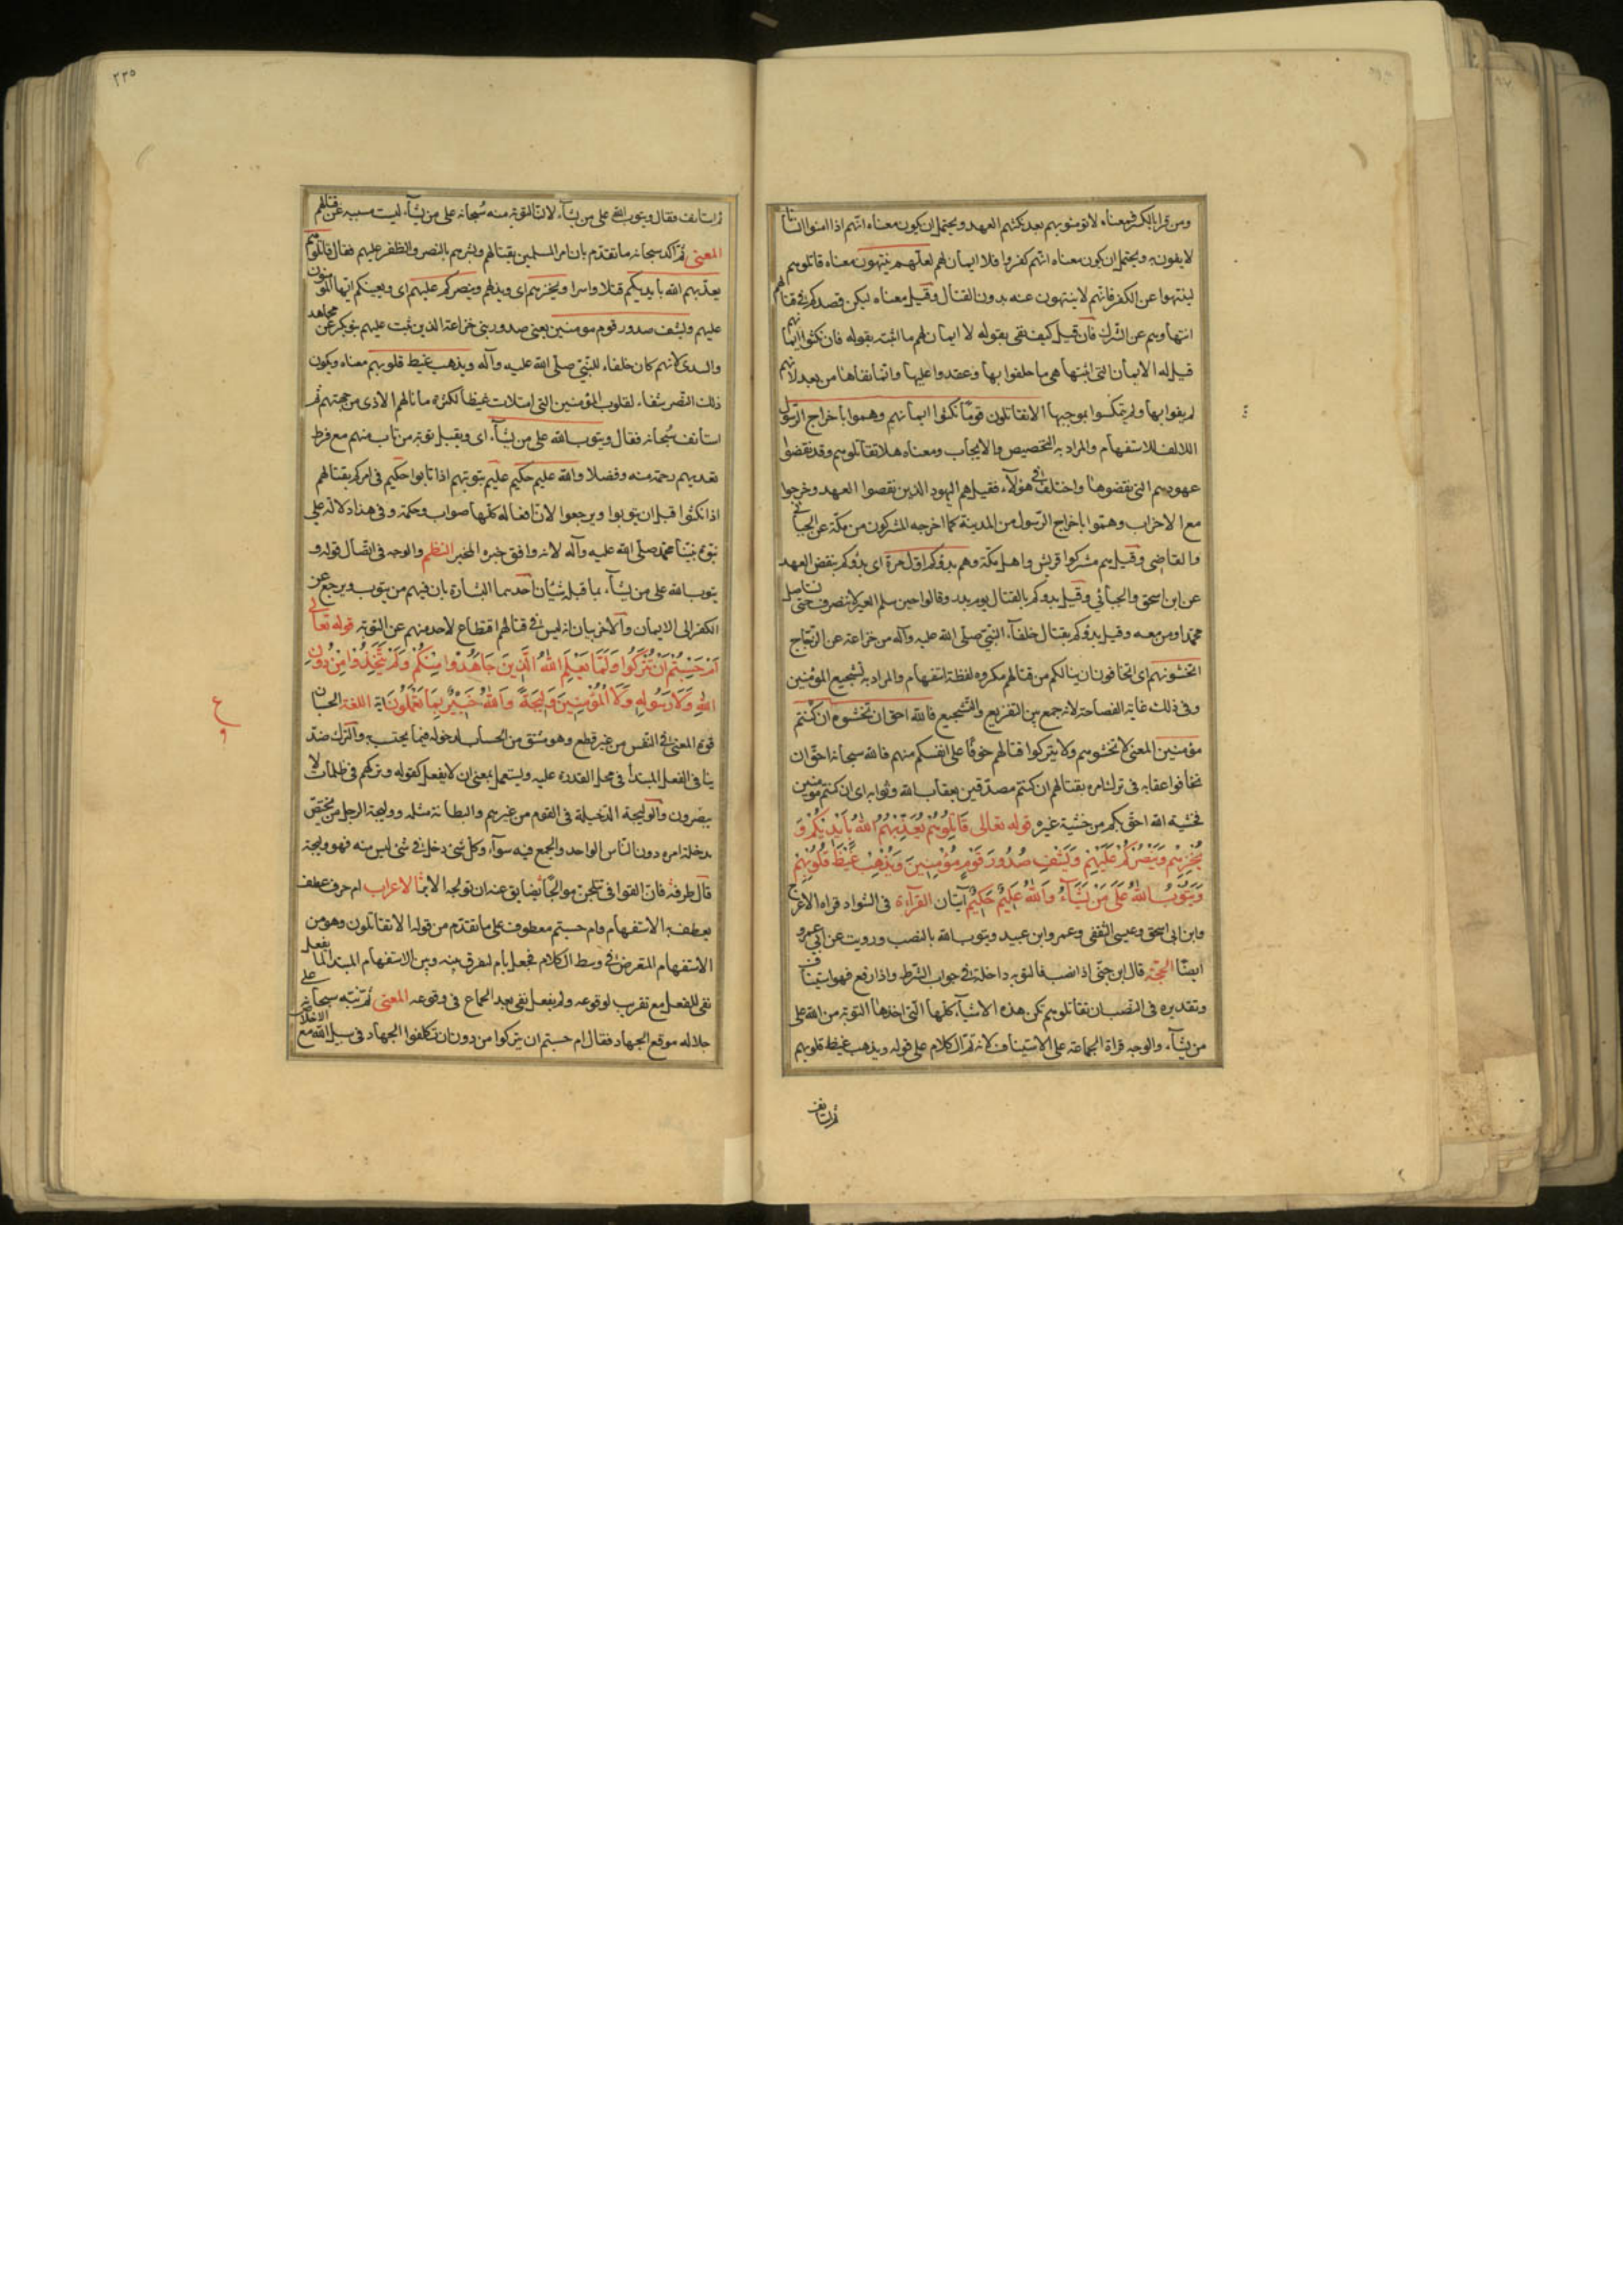 ومن قرا بالكسر فمعناه لا تومنوهم بعد نكثهم العهد ويحتمل ان يكون معناه انهم اذا امنوا انسانا
لا يفون به ويحتمل ان يكون معناه انهم كفروا فلا ايمان لهم لعلهم ينتهون معناه قاتلوهم
لينتهوا عن الكفر فانهم لا ينتهون عنه بدون القتال وقيل معناه ليكن قصدكم فى قتالهم
انتهاوهم عن الشرك فان قيل كيف نفى بقوله لا ايمان لهم ما اثبته بقوله فان نكثوا ايمانهم
قيل له الايمان التى اثبتها هى ما حلفوا بها وعقدوا عليها وانما نفاها من بعد لانهم
لم يفوا بها ولم يتمسكوا بموجبها الا تقاتلون قوما نكثوا ايمانهم وهموا باخراج الرسول
الالف للاستفهام والمراد به التحضيض والايجاب ومعناه هلا تقاتلوهم وقد نقضوا
عهودهم التى نقضوها واختلف فى هولآء فقيل هم اليهود الذين نقضوا العهد وخرجوا
مع الاحزاب وهموا باخراج الرسول من المدينة كما اخرجه المشركون من مكة عن الجبائى
والقاضى وقيل هم مشركوا قريش واهل مكة وهم بدؤكم اول مرة اى بدؤكم بنقض العهد
عن ابن اسحق والجبائي وقيل بدوكم بالقتال يوم بدر وقالوا حين سلم العير لا ننصرف حتى نستاصل
محمدا ومن معه وقيل بدؤكم بقتال خلفآء النبى صلى الله عليه وآله من خزاعة عن الزجاج
اتخشونهم اى اتخافون ان ينالكم من قتالهم مكروه لفظة استفهام والمراد به تشجيع المؤمنين
وفى ذلك غاية الفصاحة لانه جمع بين التقريع والتشجيع فالله احق ان تخشوه ان كنتم
مؤمنين المعنى لا تخشوهم ولا يتركوا قتالهم خوفا على انفسكم منهم فالله سبحانه احق ان
تخافوا عقابه فى ترك امره بقتالهم ان كنتم مصدقين بعقاب الله وثوابه اى ان كنتم مومنين
فخشية الله احق بكم من خشية غيره قوله تعالى قَاتِلُوهُمْ يُعَذِّبْهُمُ اللهُ بِأَيْدِيكُمْ وَ
يُخْزِهِمْ وَيَنْصُرْكُمْ عَلَيْهِمْ وَيَشْفِ صُدُورَ قَوْمٍ مُؤْمِنِينَ وَيُذْهِبْ غَيْظَ قُلُوبِهِمْ
وَيَتُوبُ اللهُ عَلَى مَنْ يَشَآءُ وَاللهُ عَلِيمٌ حَكِيمٌ آيتان القرآءة فى الشواذ قراه الاعرج
وابن ابى اسحق وعيسى الثقفى وعمرو ابن عبيد ويتوب الله بالنصب ورويت عن ابى عمرو
ايضًا الحجة قال ابن جنى اذا نصب فالتوبه داخلة فى جواب الشرط واذا رفع فهو استيناف
وتقديره فى النصب ان تقاتلوهم تكن هذه الاشيآء كلها التى احدها التوبة من الله على
من يشآء والوجه قراة الجماعة على الاستيناف لانه تم الكلام على قوله ويذهب غيظ قلوبهم
ثم استانف
٢٣٥
ثم استانف فقال ويتوب الله على من يشآء لان التوبة منه سُبحانه على من يشآء ليست مسببه عن قتلهم
المعنى ثم اكد سبحانه ما تقدم بان امر المسلمين بقتالهم وبشرهم بالنصر والظفر عليهم فقال قاتلوهم
يعذبهم الله بايديكم قتلا واسرا ويخزهم اى ويذلهم وينصركم عليهم اى ويعينكم ايها المؤمنون
عليهم ويشف صدور قوم مومنين يعنى صدور بنى خزاعة الذين بيت عليهم بنو بكر عن مجاهد
والسدى لانهم كان خلفاء للنبىّ صلى الله عليه وآله ويذهب غيظ قلوبهم معناه ويكون
ذلك النصر شفاء لقلوب المؤمنين التى امتلات غيظا لكثرة ما نالهم الاذى من جهتهم ثم
استانف سُبحانه فقال ويتوب الله على من يشآء اى ويقبل توبة من تاب منهم مع فرط
تعديهم رحمة منه وفضلا والله عليم حكيم عليم بتوبتهم اذا تابوا حكيم فى امركم بقتالهم
اذا نكثوا قبل ان يتوبوا ويرجعوا لان افعاله كلها صواب وحكمة وفى هذا دلالة على
نبوة نبينا محمد صلى الله عليه وآله لانه وافق خبره المخبر النظم والوجه فى اتصال قوله و
يتوب الله على من يشآء بما قبله شيئان احدهما البشارة بان فيهم من يتوب ويرجع عن
الكفر الى الايمان والآخر بيان انه ليس فى قتالهم اقتطاع لاحد منهم عن التوبة قوله تعالى
اَمْ حَسِبْتُمْ أَنْ تُتْرَكُوا وَلَمَّا يَعْلَمِ اللهُ الَّذِينَ جَاهَدُوا مِنْكُمْ وَلَمْ يَتَّخِذُوا مِنْ دُونِ
اللهِ وَلَا رَسُولِهِ وَلَا الْمُؤْمِنِينَ وَلِيجَةً وَاللهُ خَبِيرٌ بِمَا تَعْمَلُونَ اية اللغة الحسبان
قوة المعنى فى النفس من غير قطع وهو مشتق من الحساب لدخوله فيما يحتسب به والترك ضد
ينافى الفعل المبتدأ فى محل القدرة عليه ويستعمل بمعنى ان لا يفعل كقوله وتركهم فى ظلمات لا
يبصرون والوليجة الدخيلة فى القوم من غيرهم والبطانة مثله ووليجة الرجل من يختص
بدخلة امره دون الناس الواحد والجمع فيه سوآء وكل شئ دخل فى شئ ليس منه فهو وليجة
قال طرفة فان القوافى تتلجن موالجًا تضايق عنه ان تولجه الابر الاعراب ام حرف عطف
يعطف به الاستفهام وام حسبتم معطوف على ما تقدم من قوله الا تقاتلون وهو من
الاستفهام المعترض فى وسط الكلام فجعل بام ليفرق بينه وبين الاستفهام المبتدا لما يفعل
نفى للفعل مع تقريب لوقوعه ولم يفعل نفى بعد اطماع فى وقوعه المعنى ثم نبه سبحانه على
جلاله موقع الجهاد فقال ام حسبتم ان يتركوا من دون ان تكلفوا الجهاد فى سبيل الله مع الاخلاص
ع